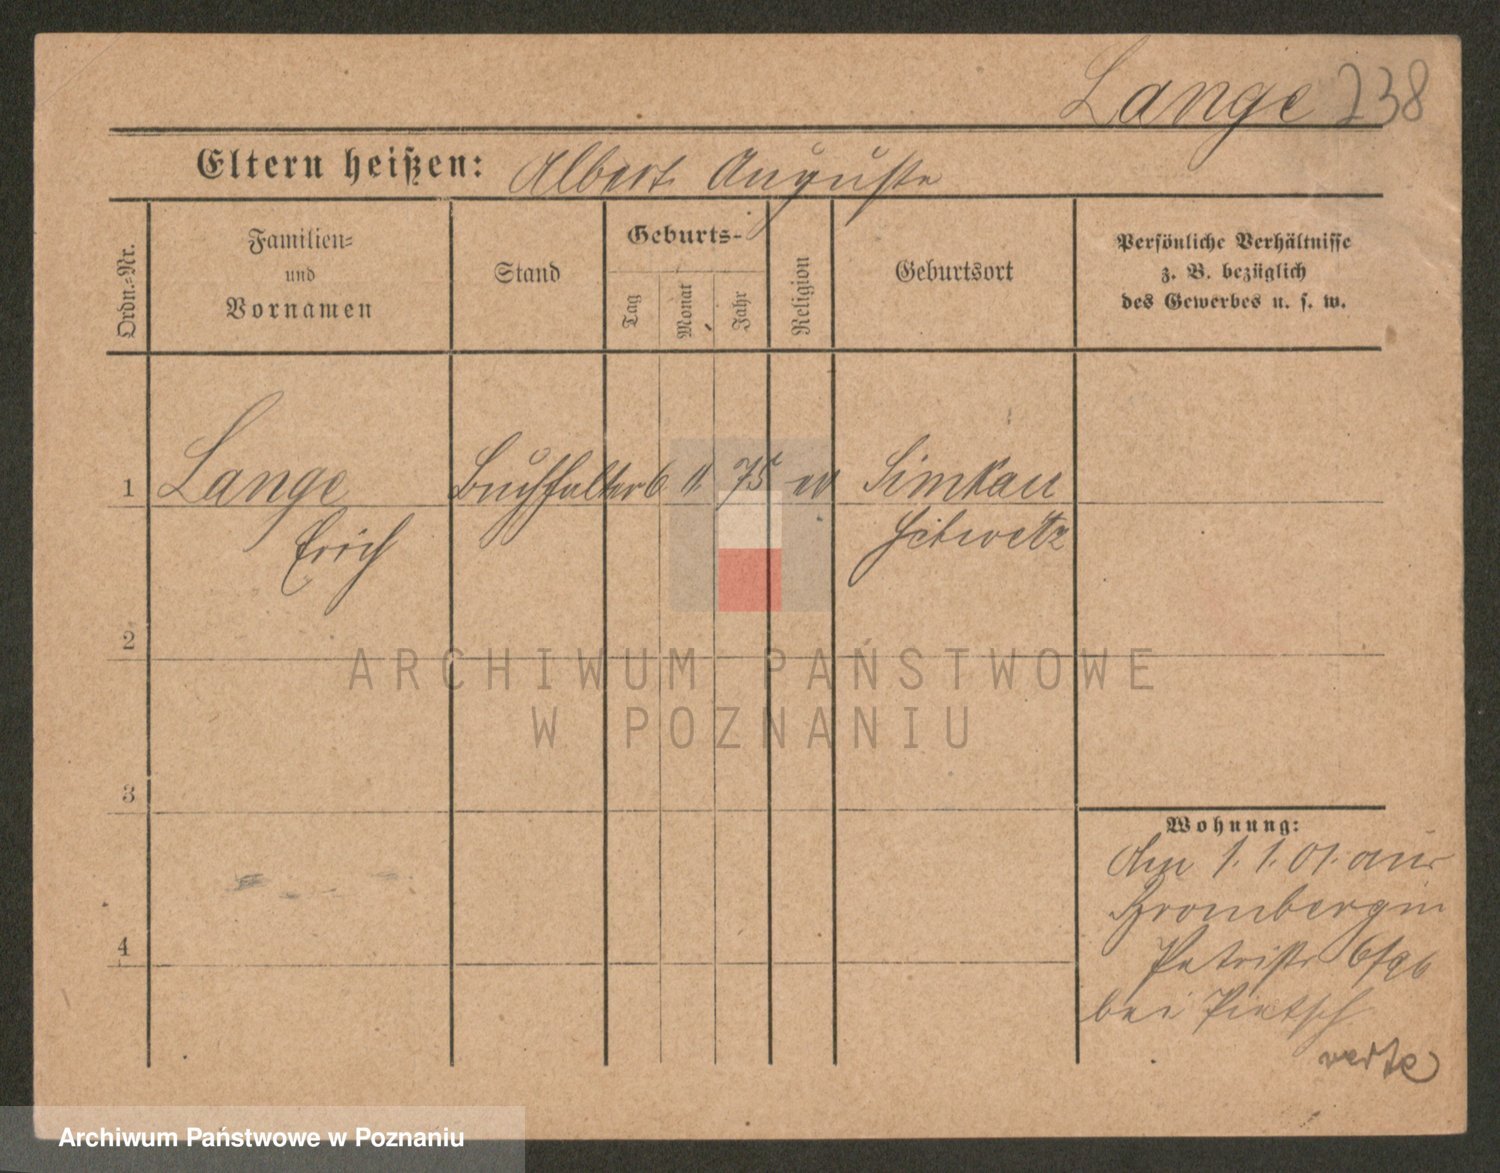 Lange 238
Eltern heißen: Albert Auguste
Ordn.-Nr.
Familien-
und
Vornamen
Stand
Geburts-
Tag
Monat
Jahr
Religion
Geburtsort
Persönliche Verhältnisse
z. B. bezüglich
des Gewerbes u. s. w.
1 Lange Buchhalter 6 11 75 ev Simkau
Erich Schwetz
2
ARCHIWUM PAŃSTWOWE
W POZNANIU
3
4
Wohnung:
Am 1. 1. 01. aus
Bromberg in
Petristr
bei Pietsch
verte
Archiwum Państwowe w Poznaniu